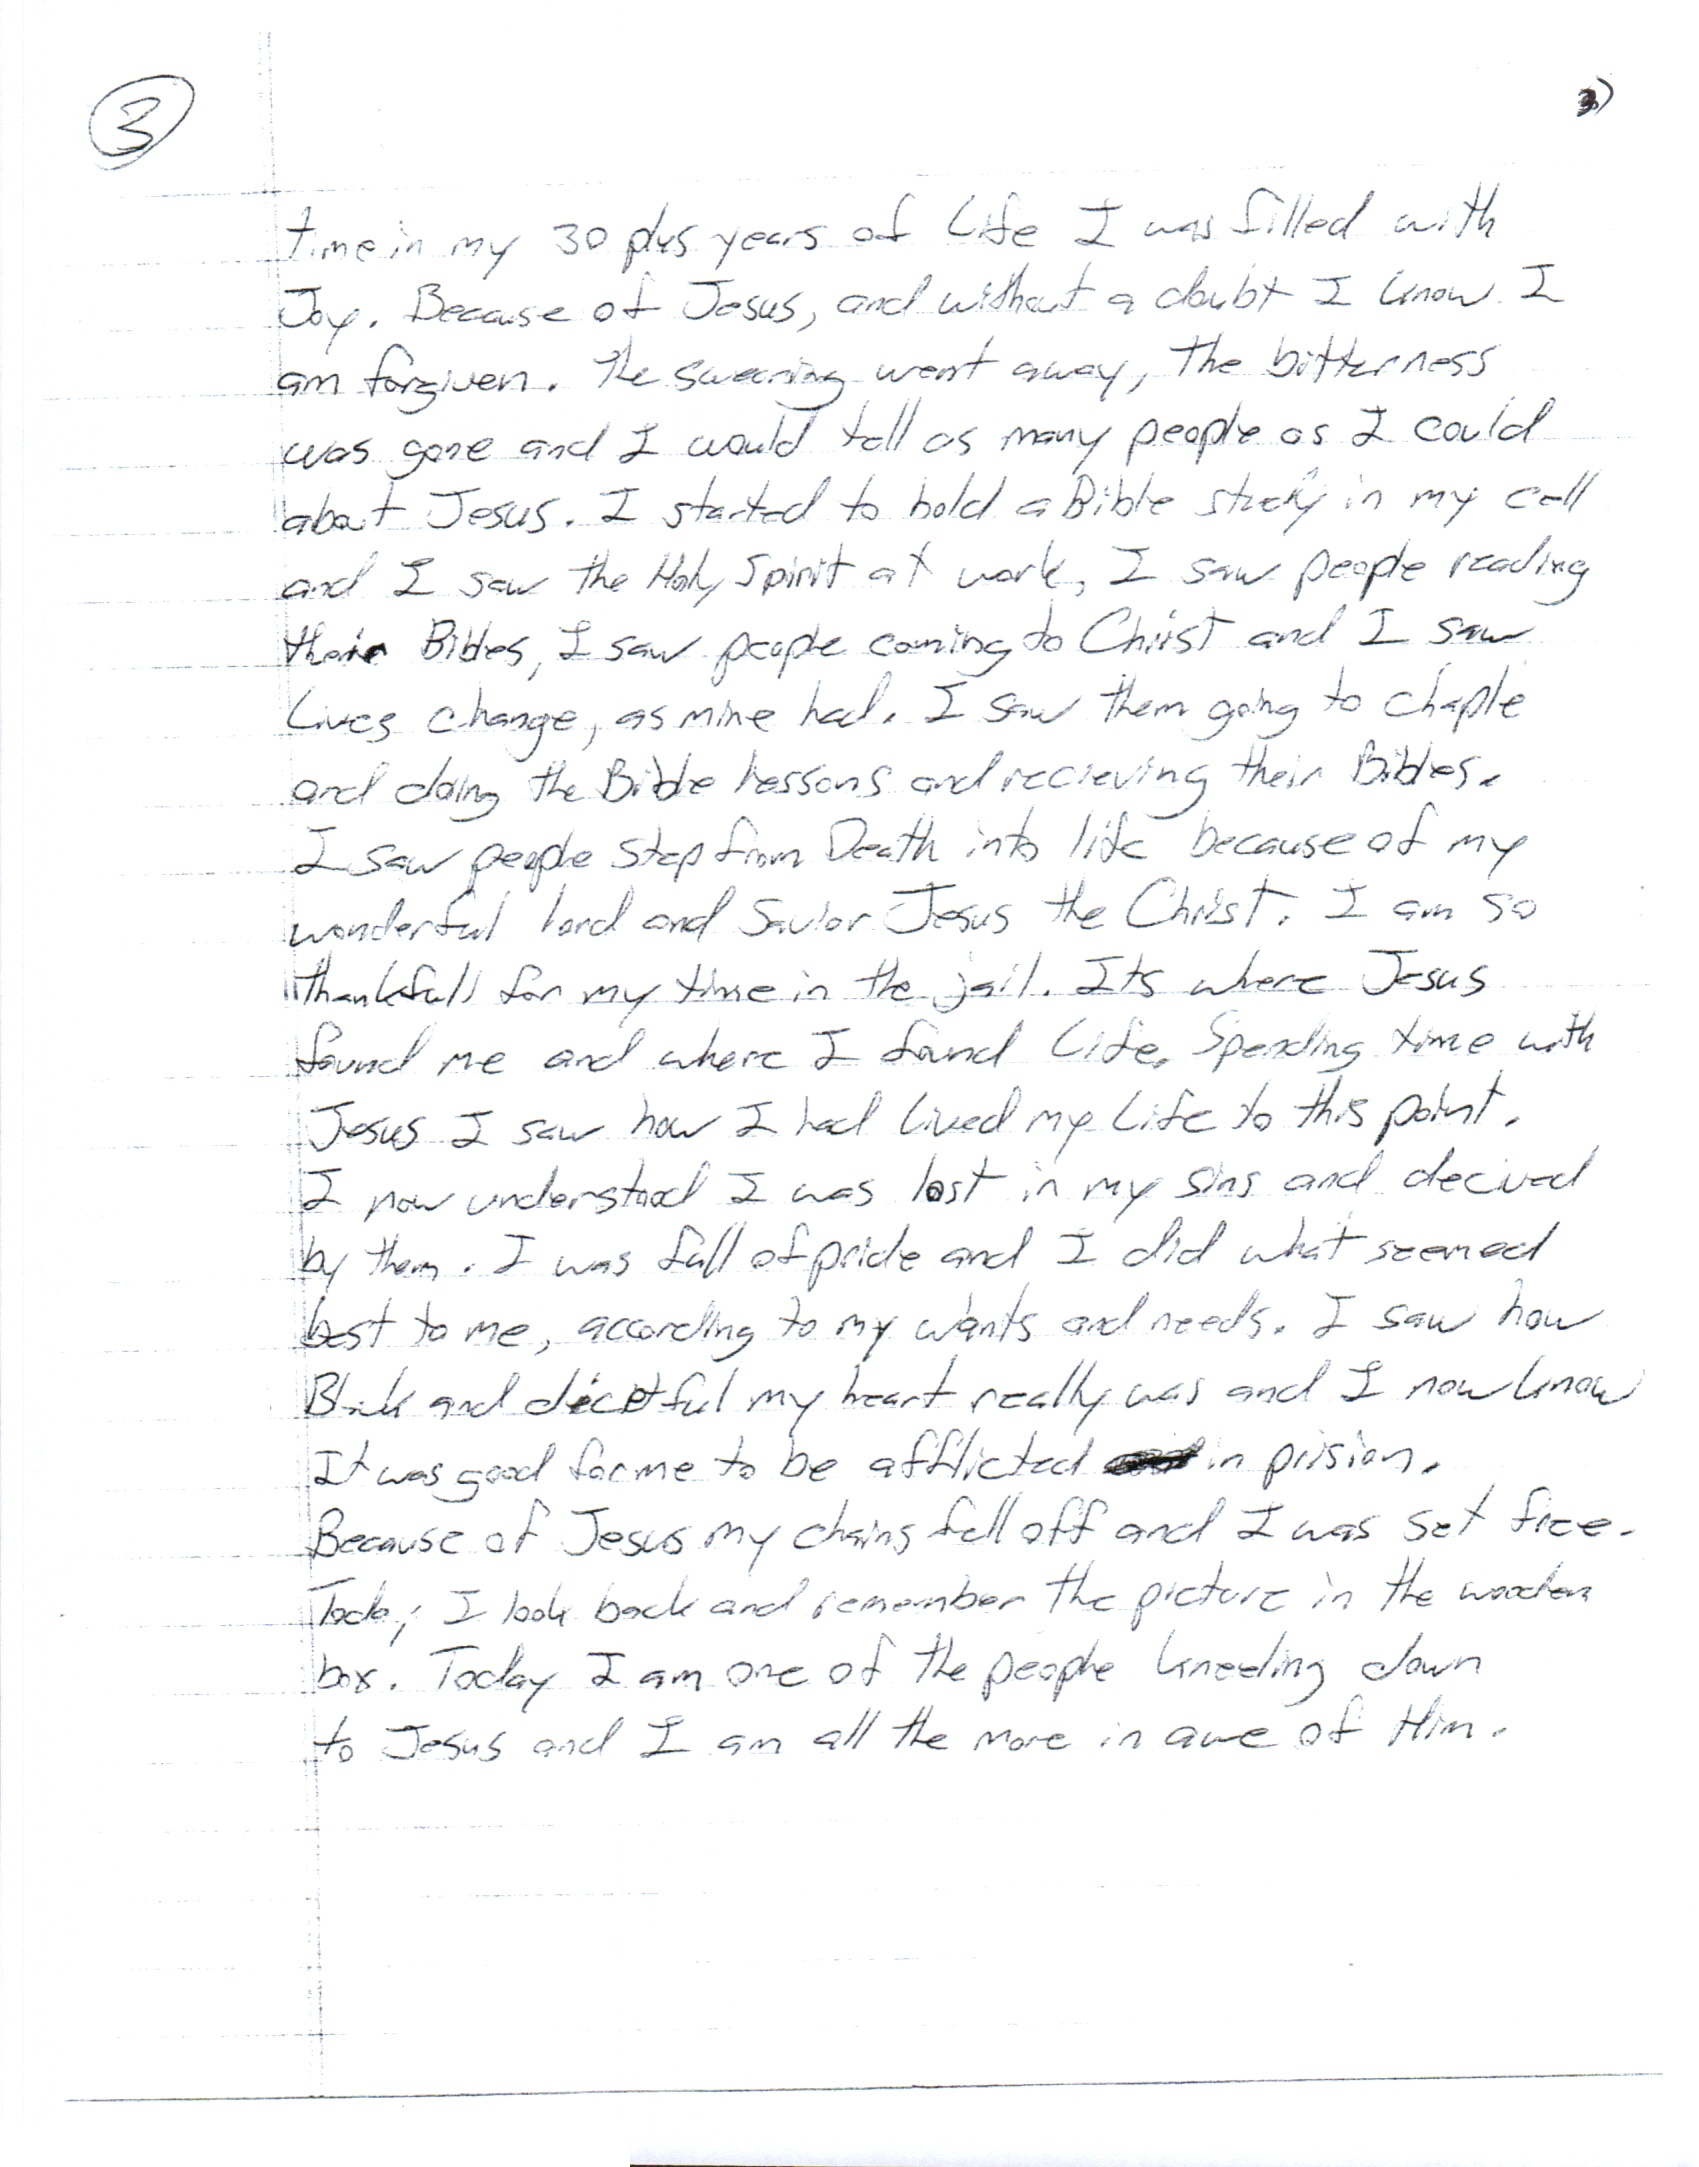 3
3)
time in my 30 plus years of Life I was filled with
Joy. Because of Jesus, and without a doubt I know I
am forgiven. The swearing went away, The bitterness
was gone and I would tell as many people as I could
about Jesus. I started to hold a Bible study in my cell
and I saw the Holy Spirit at work, I saw people reading
their Bibles, I saw people coming to Christ and I saw
Lives change, as mine had. I saw them going to chaple
and doing the Bible lessons and recieving their Bibles.
I saw people step from Death into life because of my
wonderful lord and Savior Jesus the Christ. I am so
thankfull for my time in the jail. Its where Jesus
found me and where I found Life. Spending time with
Jesus I saw how I had Lived my Life to this point.
I now understood I was lost in my sins and decived
by them. I was full of pride and I did what seemed
best to me, according to my wants and needs. I saw how
and my heart really was and I now know
It was good for me to be afflicted in prision.
Because of Jesus my chains fell off and I was set free.
Today I look back and remember the picture in the wooden
box. Today I am one of the people kneeling down
to Jesus and I am all the more in awe of Him.